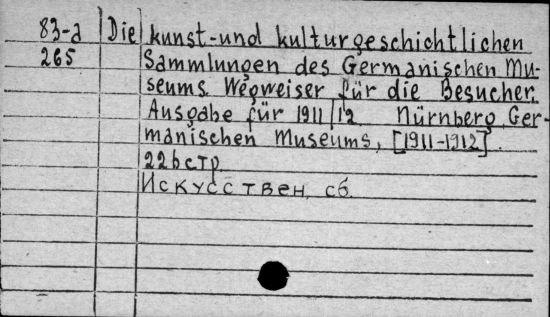 83-2 Die kunst-und kulturgeschichtlichen
265 Sammlungen des Germanischen Mu-
seums. Wegweiser für die Besucher.
Ausgabe für 1911/12 Nürnberg, Ger-
manischen Museums, [1911-1912].
226 стр.
Искусствен. сб.